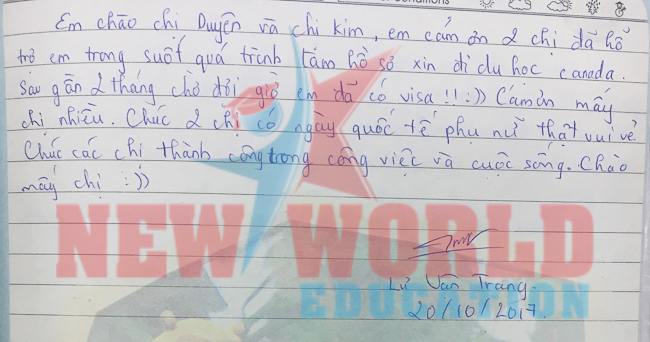 onditions
Em chào chị Duyên và chi Kim, em cám ơn 2 chị đã hổ
trở em trong suốt quá trình làm hồ sơ xin đi du học canada.
Sau gần 2 tháng chờ đợi giờ em đã có visa !!:)) Cám ơn mấy
chị nhiều. Chúc 2 chị có ngày quốc tế phụ nữ thật vui vẻ
Chúc các chị thành công trong công việc và cuộc sống. Chào
mấy chị :))
NEW WORLD
EDUCATION
Lử Vân Trang.
20/10/2017.